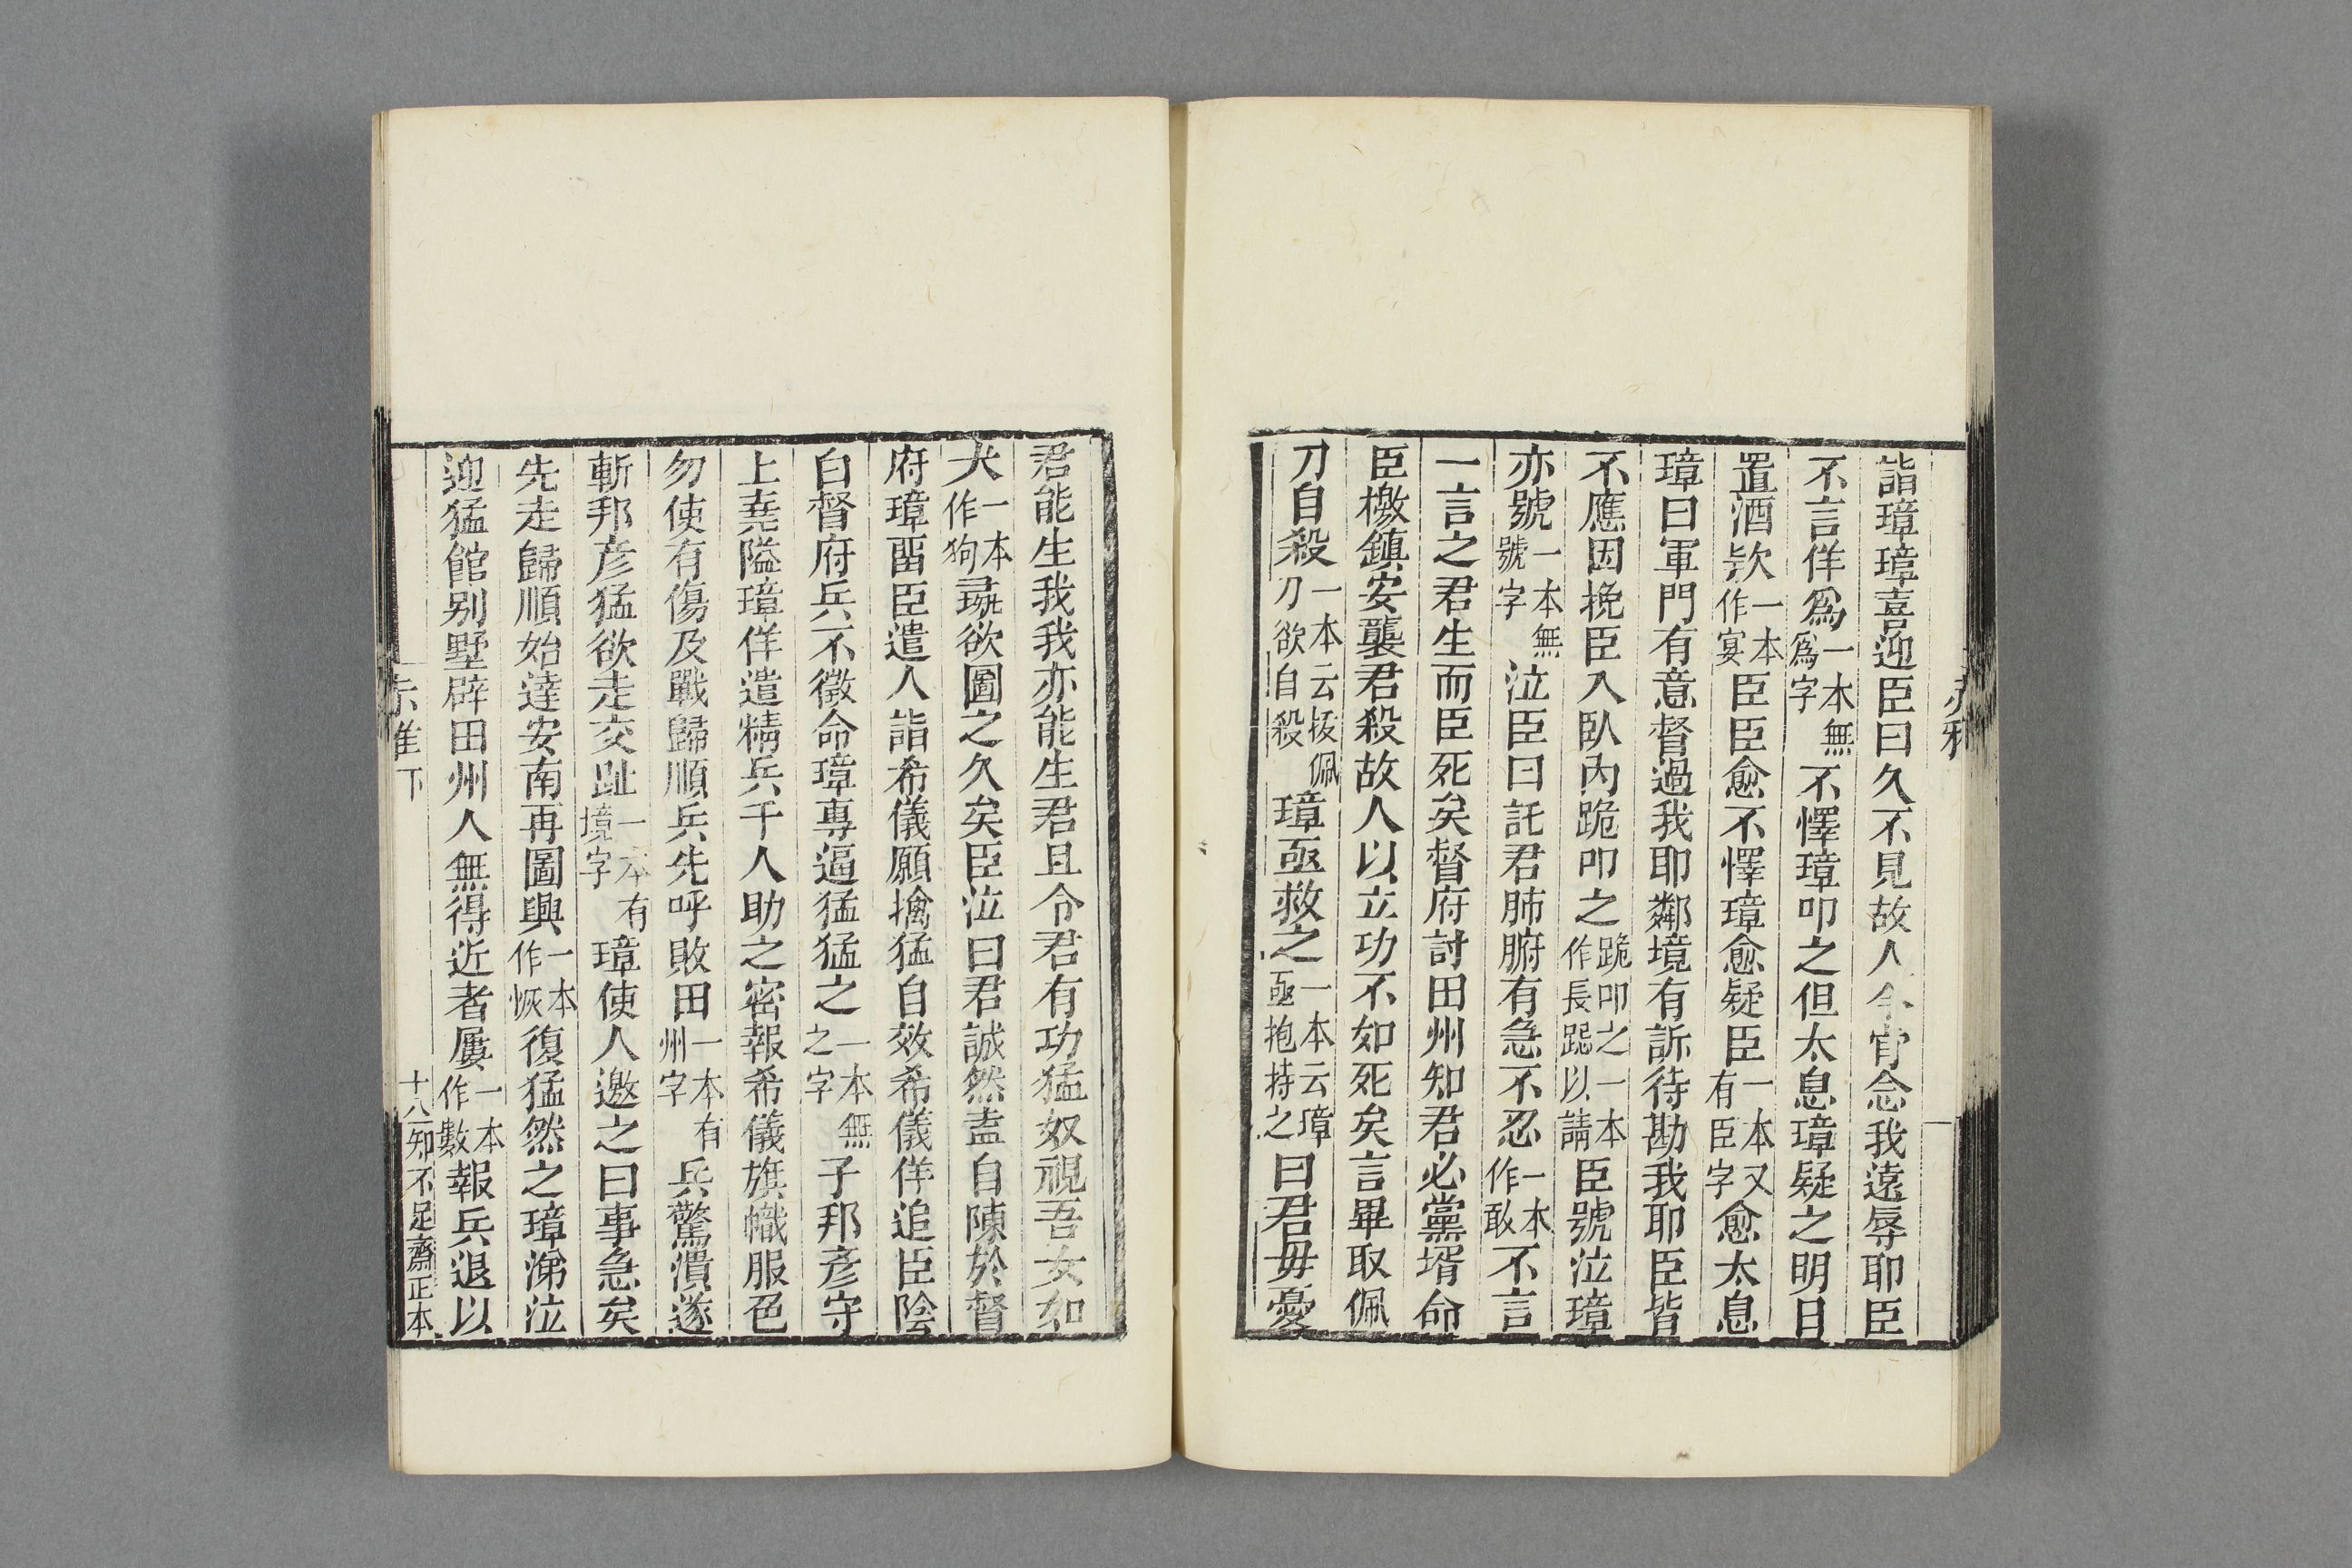 詣璋璋喜迎臣曰久不見故人今肯念我遠辱耶臣
不言佯爲一本無爲字不懌璋叩之但太息璋疑之明日
置酒欵一本作宴臣臣愈不懌璋愈疑臣一本又有臣字愈太息
璋曰軍門有意督過我耶鄰境有訴待勘我耶臣皆
不應因挽臣入臥內跪叩之跪叩之一本作長跽以請臣號泣璋
亦號一本無號字泣臣曰託君肺腑有急不忍一本作敢不言
一言之君生而臣死矣督府討田州知君必黨壻命
臣檄鎮安襲君殺故人以立功不如死矣言畢取佩
刀自殺一本云拔佩刀欲自殺璋亟救之一本云璋亟抱持之曰君毋憂
君能生我我亦能生君且令君有功猛奴視吾女如
犬一本作狗彘欲圖之久矣臣泣曰君誠然盍自陳於督
府璋畱臣遣人詣希儀願擒猛自效希儀佯追臣陰
白督府兵不徵命璋專逼猛猛之一本無之字子邦彥守
上堯隘璋佯遣精兵千人助之密報希儀旗幟服色
勿使有傷及戰歸順兵先呼敗田一本有州字兵驚潰遂
斬邦彥猛欲走交趾一本有境字璋使人邀之曰事急矣
先走歸順始達安南再圖興一本作恢復猛然之璋涕泣
迎猛館别墅辟田州人無得近者屢一本作數報兵退以
赤雅下
十八知不足齋正本